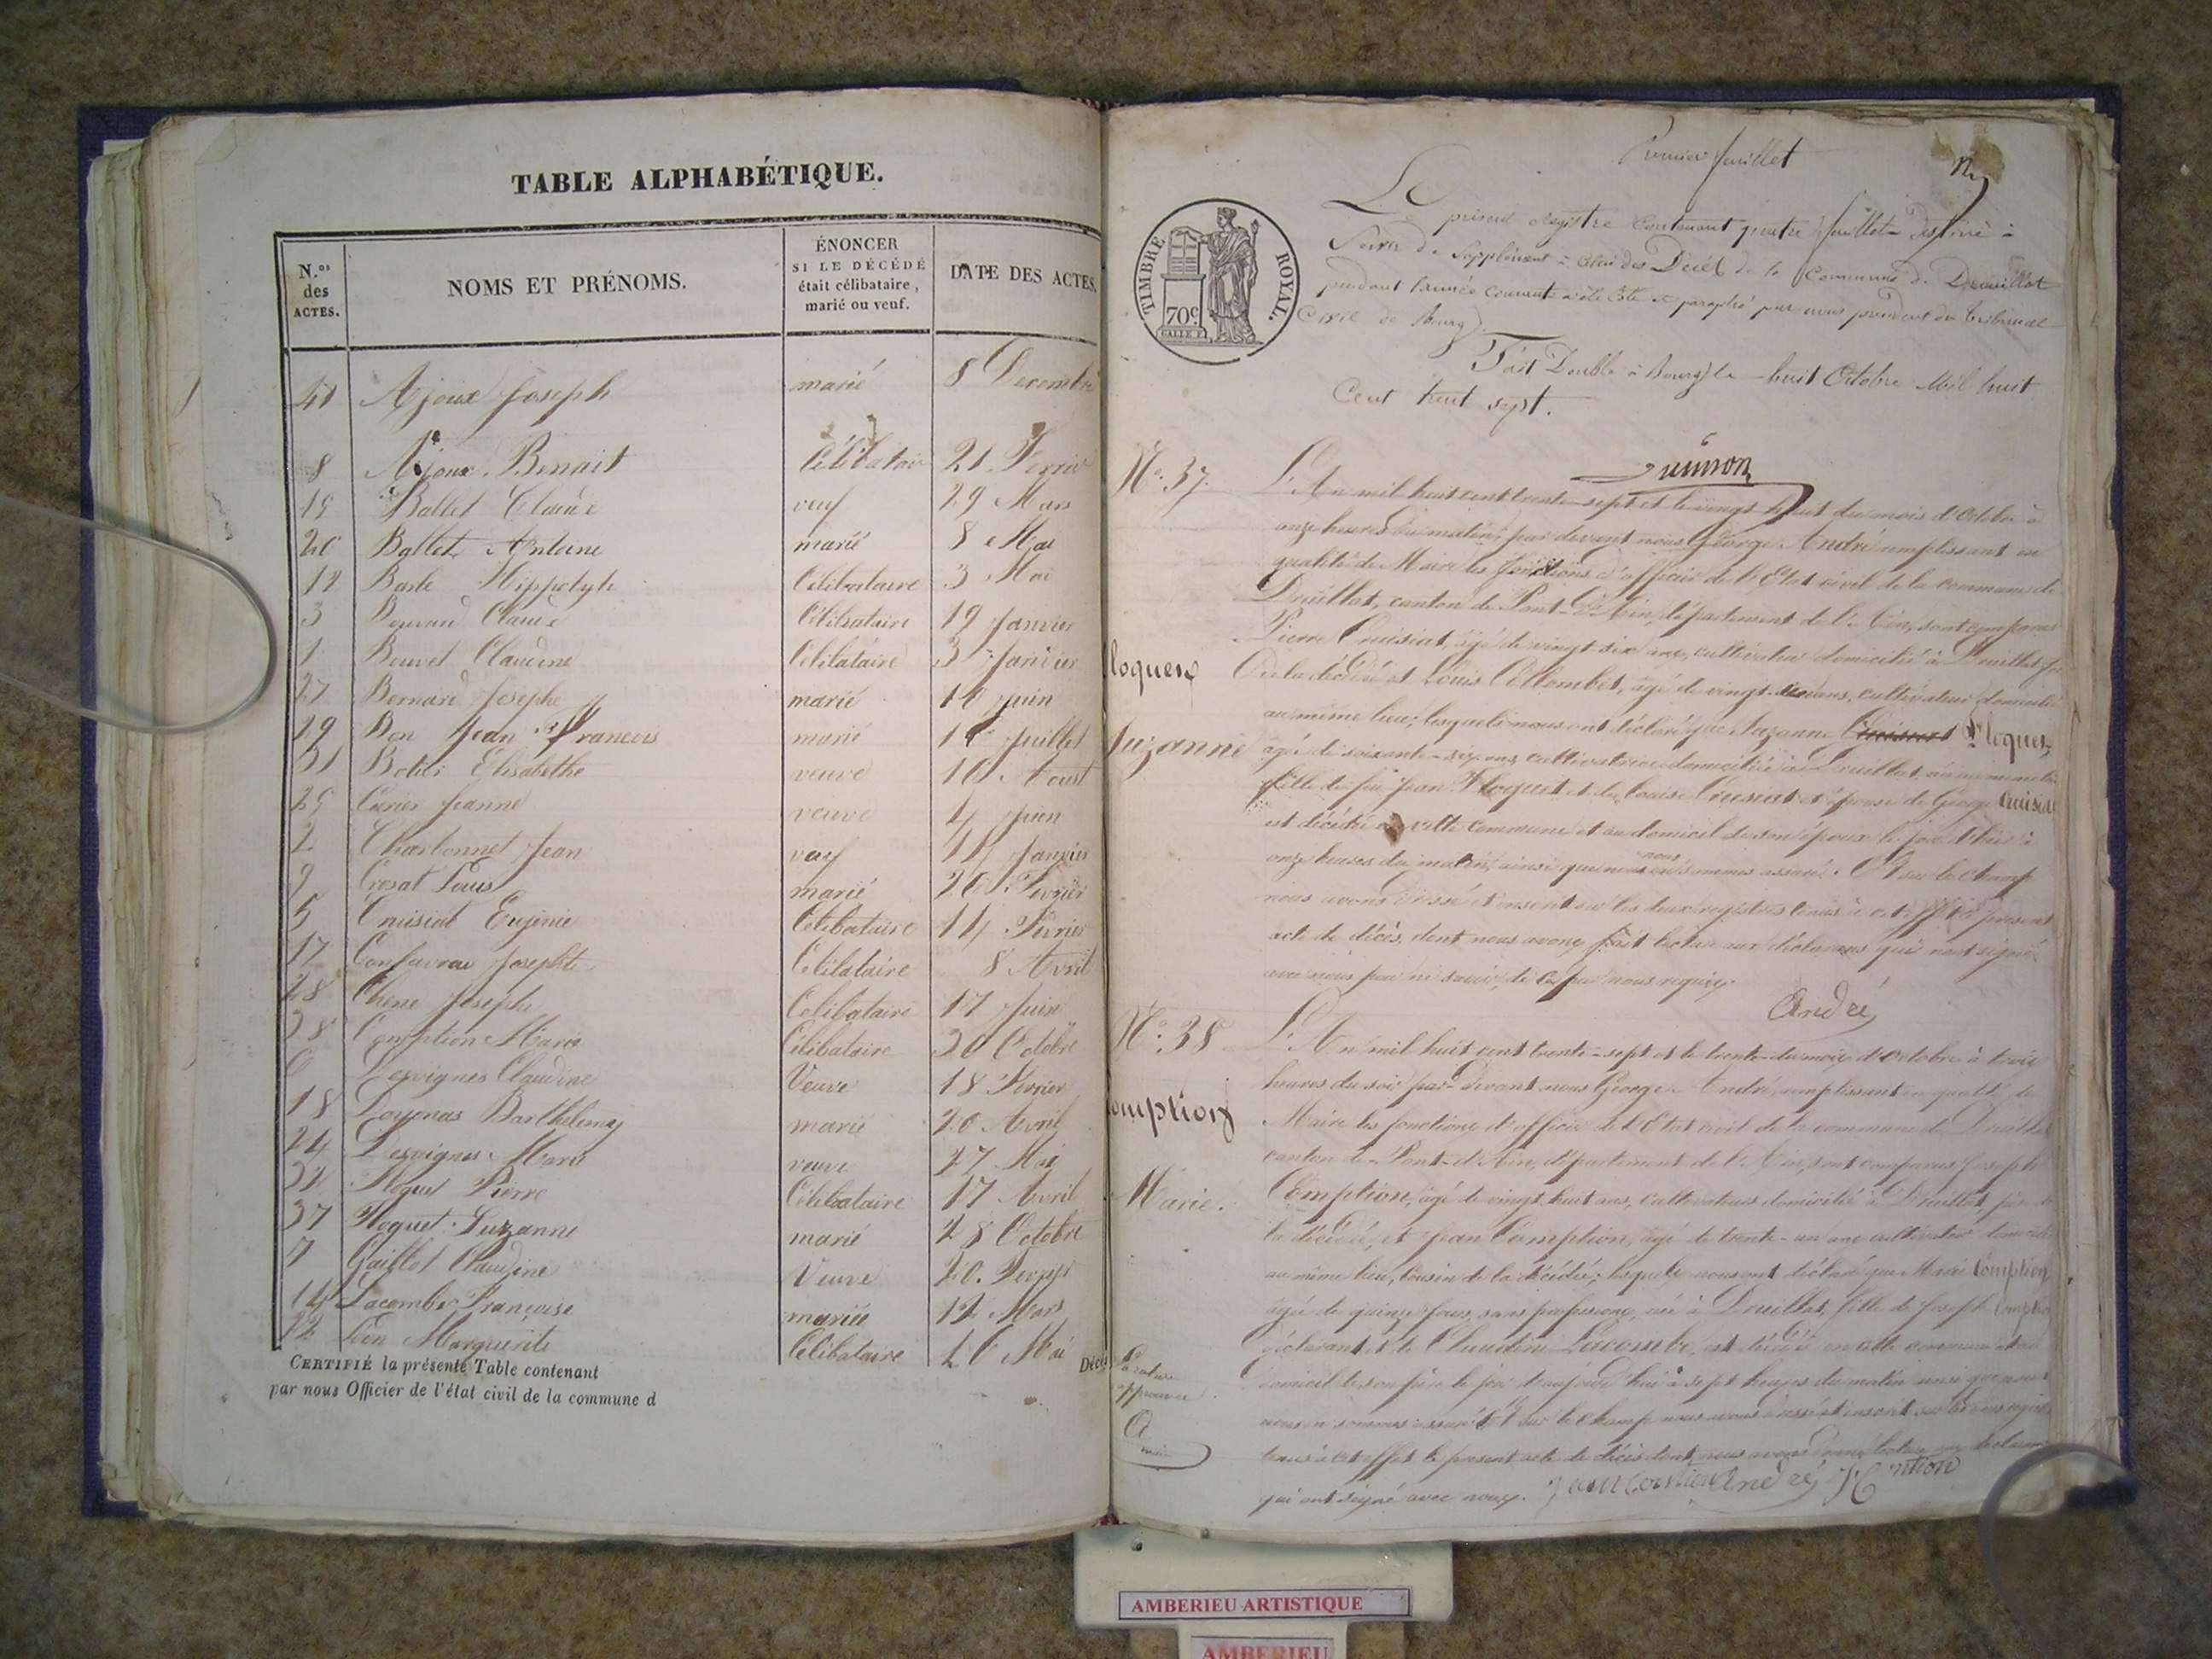 TABLE ALPHABÉTIQUE.
N.os des ACTES.
NOMS ET PRÉNOMS.
ÉNONCER SI LE DÉCÉDÉ était célibataire, marié ou veuf.
DATE DES ACTES.
41 Ajoux Joseph marié 8 Decembre
8 Ajoux Benoit Célibatair 21 Fevrie
15 Ballet Claude veuf 29 Mars
20 Ballet Antoine marié 8 Mai
Hippolyte Célibataire 3 Mai
3 Claude Célibataire 19 Janvier
1 Bouvet Claudine Célibataire 3 Janvier
27 Bernard Josephe marié 10 Juin
29 Bon Jean François marié Juillet
31 Elisabethe veuve 10 Aoust
25 Carier Jeanne veuve 4 Juin
2 Charbonnet Jean veuf 14 Janvier
9 marié 20 Fevrier
5 Cruisiat Eugénie Célibataire 14 Fevrier
17 Josephte Célibataire 8 Avril
28 Chene Joseph Célibataire 17 Juin
38 Comption Marie Célibataire 30 Octobre
6 Desvignes Claudine Veuve 18 Fevrier
18 Doyonas Barthelemy marié 20 Avril
24 Desvignes Marie veuve 27 Mai
32 Floquet Pierre Célibataire 17 Avril
37 Floquet Suzanne marié 28 Octobre
7 Gaillot Claudine Veuve 20 Fevrier
14 Lacombe Françoise mariée 12 Mars
22 Marguerite Célibataire Mai
CERTIFIÉ la présente Table contenant
par nous Officier de l'état civil de la commune d
Décès
Premier feuillet
TIMBRE ROYAL.
70c
Le présent Registre Contenant quatre feuillets Destiné à
Servir de Supplément à celui des Décès de la Commune de Druillat
pendant l'année courante a été Coté et paraphé par nous président du Tribunal
Civil de Bourg.
Fait Double à Bourg le huit Octobre Mil huit
Cent trent sept.
N°. 37.
L'An mil huit cent trente-sept et le vingt huit du mois d'Octobre à
onze heures du matin par devant nous George André remplissant en
qualité de Maire les fonctions d'officier de l'Etat civil de la commune de
Druillat, canton de Pont-d'Ain, département de l'Ain, sont comparus
Pierre Cruisiat, âgé de vingt six ans, cultivateur domicilié à Druillat fils
loquet
De la décédé et Louis Collombet, âgé de vingt ans, cultivateur domicilié
au même lieu; lesquels nous ont déclaré que Suzanne Floquet,
Suzanne
âgée de soixante ans cultivatrice domiciliée à Druillat,
fille de feu Jean Floquet et de Louise Cruisiat et épouse de George Cruisiat
est décédée en cette commune et au domicile de son époux le jour d'hier à
onze heures du matin, ainsi que nous nous en sommes assuré. Et sur le champ
nous avons dressé et inscrit sur les deux registres tenus à cet effet le présent
acte de décès, dont nous avons fait lecture aux déclarans qui n'ont signé
avec nous pour ne savoir, de ce par nous requis.
André
N°. 38
L'An mil huit cent trente-sept et le trente du mois d'octobre à trois
heures du soir par-devant nous George André, remplissant en qualité de
omption
Maire les fonctions d'officier de l'Etat civil de la commune de Druillat
canton de Pont-d'Ain, département de l'Ain, sont comparus Joseph
Marie.
Comption, âgé de vingt huit ans, cultivateur domicilié à Druillat, père de
la décédée, et Jean Comption, âgé de trente-un ans cultivateur domicilié
au même lieu, cousin de la décédée; lesquels nous ont déclaré que Marie Comption
âgée de quinze jours, sans profession, née à Druillat, fille de Joseph Comption
déclarant et de Claudine Lacombe, est décédée en cette commune et au
domicile de son père le jour d'aujourd'hui à sept heures du matin ainsi que nous
nous en sommes assuré. Et sur le champ nous avons dressé et inscrit sur les deux registres
tenus à cet effet le présent acte de décès dont nous avons donné lecture aux déclarans
qui ont signé avec nous.
André
AMBERIEU ARTISTIQUE
AMBERIEU